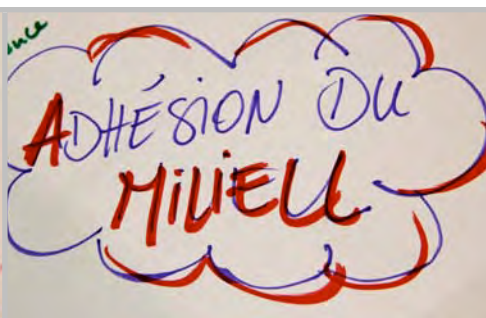 ADHÉSION DU
MILIEU